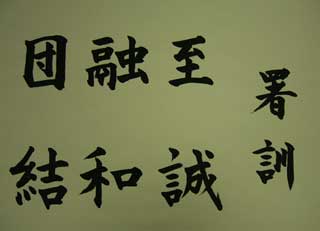 署訓
至誠
融和
団結